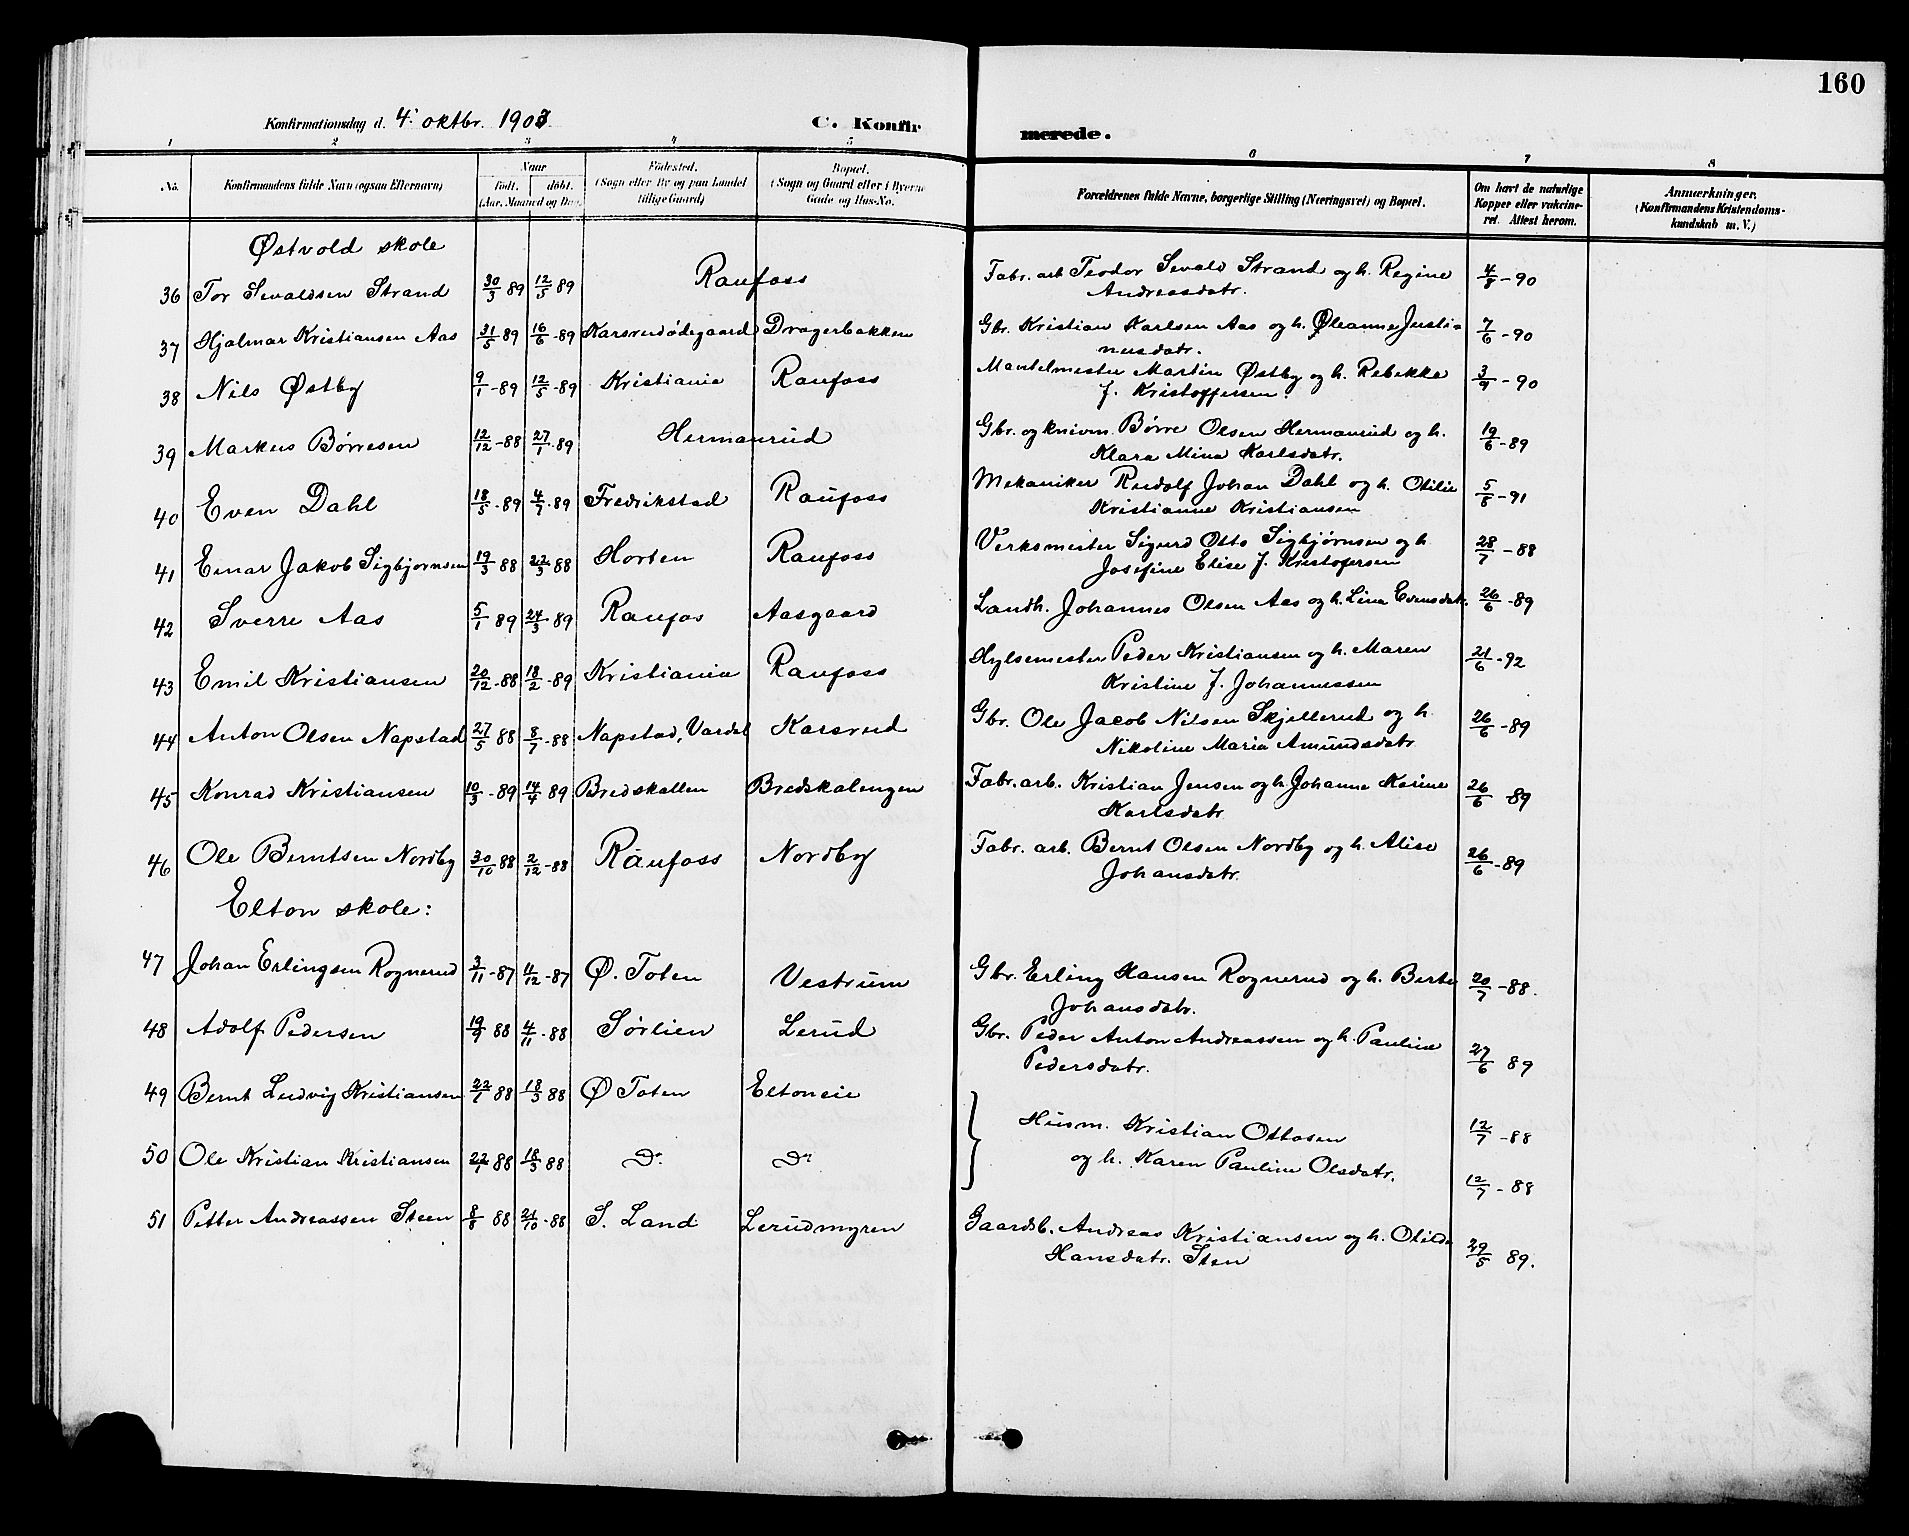 160
Konfirmationsdag d. 4. oktbr. 1903. C. Konfirmerede.
1 2 3 4 5 6 7 8
No. Konfirmandens fulde Navn (ogsaa Efternavn) Naar födt. döbt. (Aar, Maaned og Dag) Födested. (Sogn eller By og paa Landet tillige Gaard) Bopæl. (Sogn og Gaard eller i Byerne Gade og Hus-No. Forældrenes fulde Navne, borgerlige Stilling (Næringsvei) og Bopæl. Om havt de naturlige Kopper eller vakcineret. Attest herom. Anmærkninger. (Konfirmandens Kristendomskundskab m. V.)
Østvold skole
36 Tor Sevaldsen Strand 30/3 89 12/5 89 Raufoss Fabr. arb Teodor Sevald Strand og h. Regine 4/8 - 90
Andreasdatr.
37 Hjalmar Kristiansen Aas 31/5 89 16/6 - 89 Karsrudødegaard Dragerbakken Gbr. Kristian Karlsen Aas og h. Oleanne Justi- 7/6 - 90
nusdatr.
38 Nils Østby 9/1 - 89 12/5 - 89 Kristiania Raufoss Mantelmester Martin Østby og h. Rebekke 3/9 - 90
f. Kristoffersen
39 Markus Börresen 12/12 - 88 27/1 - 89 Hermanrud Gbr. og knivm. Börre Olsen Hermanrud og h. 19/6 - 89
Klara Mina Karlsdatr.
40 Even Dahl 18/5 - 89 4/7 - 89 Fredrikstad Raufoss Mekaniker Rudolf Johan Dahl og h. Otilie 5/8 - 91
Kristianne Kristiansen
41 Einar Jakob Sigbjornsen 19/3 88 22/3 88 Horten Raufoss Verksmester Sigurd Otto Sigbjørnsen og h 28/7 - 88
Josefine Elise f. Kristofersen
42 Sverre Aas 5/1 89 24/3 89 Raufos Aasgaard Landh. Johannes Olsen Aas og h. Lina Evensdatr. 26/6 - 89
43 Emil Kristiansen 20/12 - 88 18/2 - 89 Kristiania Raufoss Hylsemester Peder Kristiansen og h. Maren 21/6 - 92
Kristine f. Johannessen
44 Anton Olsen Napstad 27/5 88 8/7 - 88 Napstad, Vardal Karsrud Gbr. Ole Jacob Nilsen Skjellerud og h 26/6 - 89
Nikoline Maria Amundsdatr
45 Konrad Kristiansen 10/3 - 89 14/4 89 Bredskallen Bredskalengen Fabr. arb. Kristian Jensen og h Johanne Karine 26/6 89
Karlsdatr
46 Ole Berntsen Nordby 30/10 88 2/12 - 88 Raufoss Nordby Fabr. arb. Bernt Olsen Nordby og h. Alise 26/6 - 89
Johansdatr.
Elton skole:
47 Johan Erlingsen Rognerud 3/11 - 87 11/12 - 87 Ø. Toten Vestrum Gbr. Erling Hansen Rognerud og h. Berte 20/7 - 88.
Johansdatr.
48 Adolf Pedersen 19/9 88 4/11 - 88 Sørlien Lerud Gbr. Peder Anton Andreassen og h. Pauline 27/6 89
Pedersdatr.
49 Bernt Ludvig Kristiansen 22/1 88 18/3 88 Ø Toten Eltoneie Husm. Kristian Ottosen 12/7 - 88
50 Ole Kristian Kristiansen 22/1 88 18/3 88 Do. Do og h. Karen Pauline Olsdatr. 12/7 - 88
51 Petter Andreassen Steen 8/8 88 21/10 - 88 S. Land Lerudmyren Gaardsb. Andreas Kristiansen og h. Otilde 29/5 89.
Hansdatr. Sten